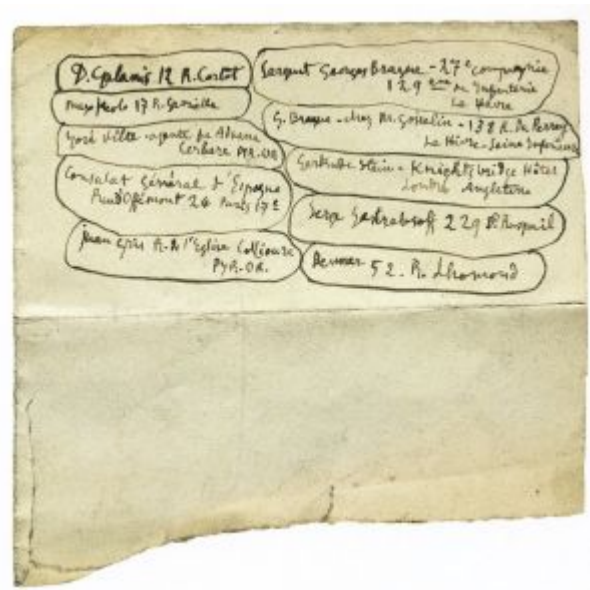 D. Galanis 12 R. Cortot
Max Jacob 17 R. Gabrielle
José agente de Aduana
Cerbere PYR-OR
Consulat Général d'Espagne
Rue d'Offémont 24 Paris 17e
Juan Gris R. de l'Eglise Collioure
PYR-OR.
Sergent Georges Braque - 27e compagnie
129eme de Infanterie
Le Havre
G. Braque - chez M. Gosselin - 138 R. De Perrey
Le Hâvre - Seine Inferieure
Gertrude Stein - Knightsbridge Hotel
Londre Angleterre
Serge 229 Bd Raspail
52. R. Lhomond